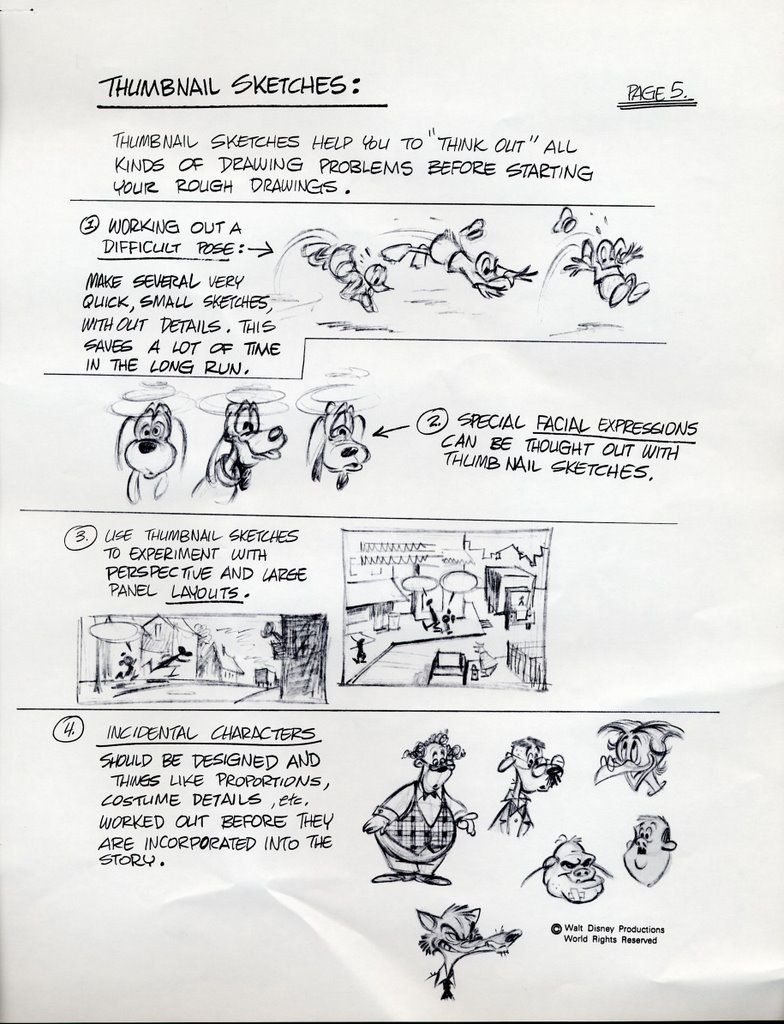 THUMBNAIL SKETCHES:
PAGE 5.
THUMBNAIL SKETCHES HELP YOU TO "THINK OUT" ALL
KINDS OF DRAWING PROBLEMS BEFORE STARTING
YOUR ROUGH DRAWINGS.
1. WORKING OUT A
DIFFICULT POSE: →
MAKE SEVERAL VERY
QUICK, SMALL SKETCHES,
WITH OUT DETAILS. THIS
SAVES A LOT OF TIME
IN THE LONG RUN.
← 2. SPECIAL FACIAL EXPRESSIONS
CAN BE THOUGHT OUT WITH
THUMB NAIL SKETCHES.
3. USE THUMBNAIL SKETCHES
TO EXPERIMENT WITH
PERSPECTIVE AND LARGE
PANEL LAYOUTS.
4. INCIDENTAL CHARACTERS
SHOULD BE DESIGNED AND
THINGS LIKE PROPORTIONS,
COSTUME DETAILS, etc.
WORKED OUT BEFORE THEY
ARE INCORPORATED INTO THE
STORY.
© Walt Disney Productions
World Rights Reserved